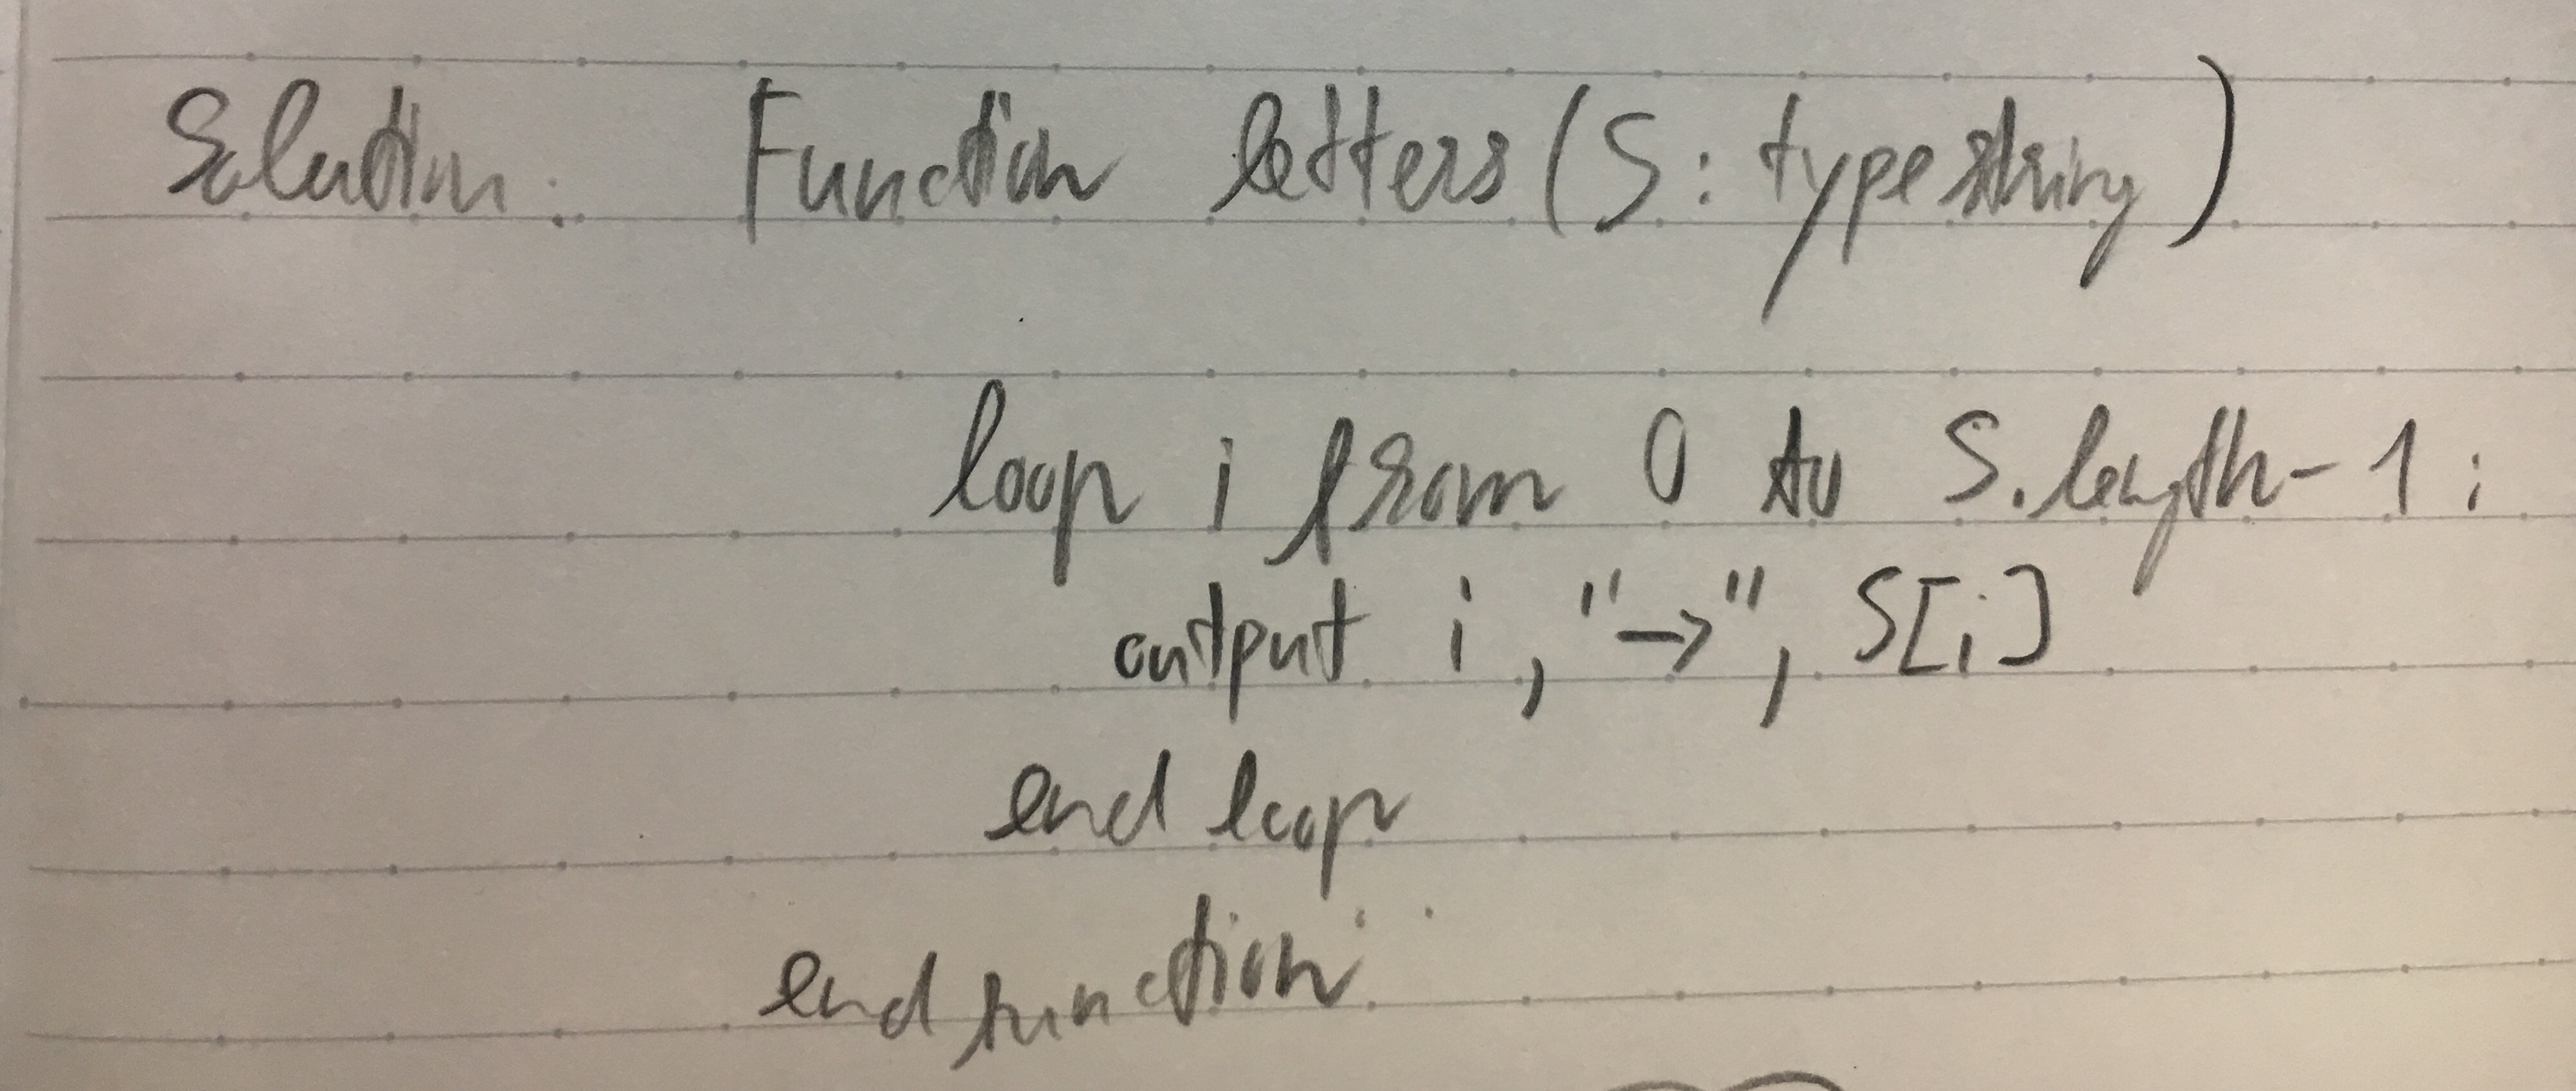 Solution: Function letters(S: type string)
loop i from 0 to S.length-1:
output i, "→", S[i]
end loop
end function